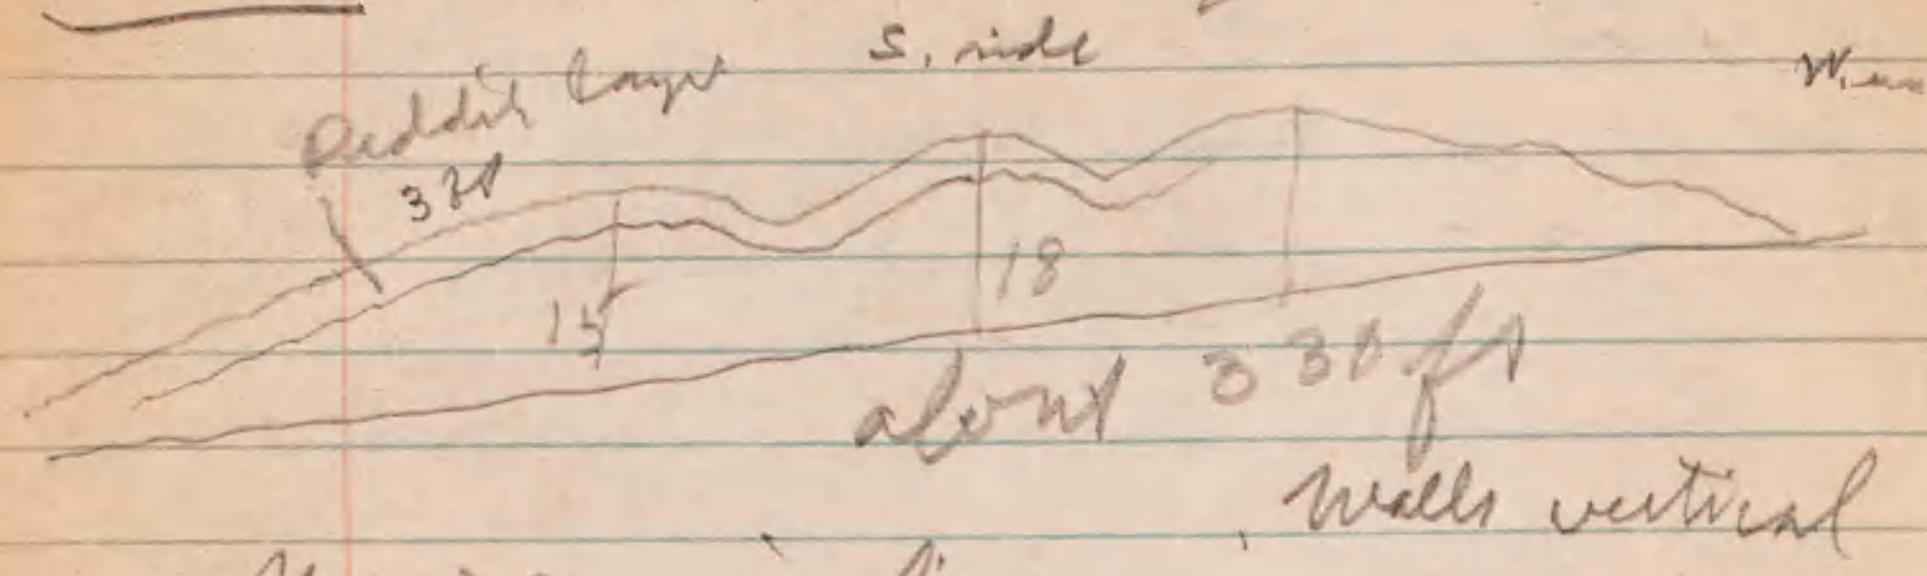 S. side
W.
Reddish layer
15
18
about 330 ft
Walls vertical